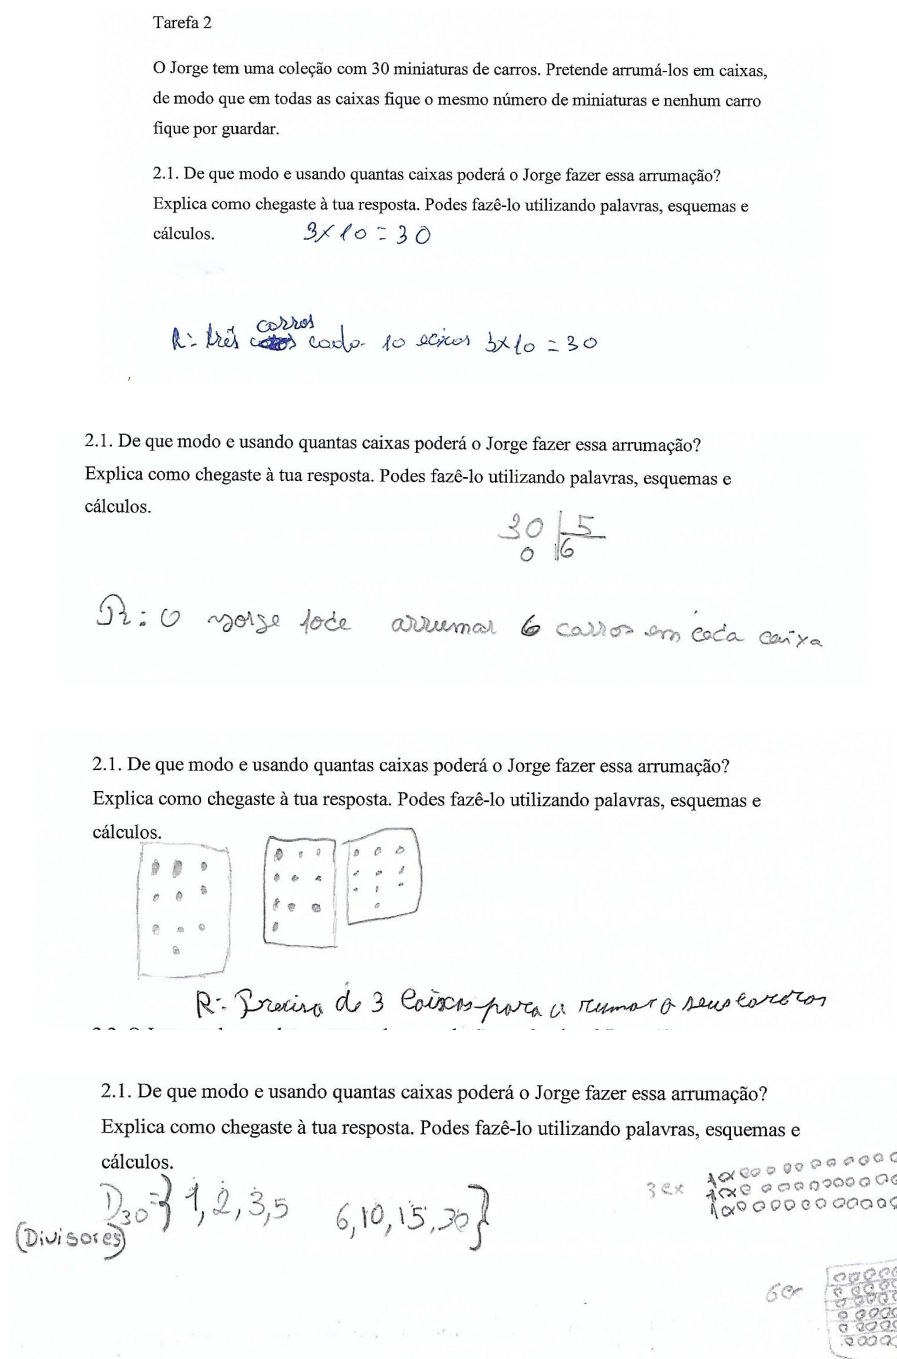 Tarefa 2
O Jorge tem uma coleção com 30 miniaturas de carros. Pretende arrumá-los em caixas,
de modo que em todas as caixas fique o mesmo número de miniaturas e nenhum carro
fique por guardar.
2.1. De que modo e usando quantas caixas poderá o Jorge fazer essa arrumação?
Explica como chegaste à tua resposta. Podes fazê-lo utilizando palavras, esquemas e
cálculos.
3x10=30
carros
R: três cada 10 3x10=30
2.1. De que modo e usando quantas caixas poderá o Jorge fazer essa arrumação?
Explica como chegaste à tua resposta. Podes fazê-lo utilizando palavras, esquemas e
cálculos.
30 5
0 6
R: O Jorge pode arrumar 6 carros em cada caixa
2.1. De que modo e usando quantas caixas poderá o Jorge fazer essa arrumação?
Explica como chegaste à tua resposta. Podes fazê-lo utilizando palavras, esquemas e
cálculos.
R: Precisa de 3 caixas para a rumar o seus
2.1. De que modo e usando quantas caixas poderá o Jorge fazer essa arrumação?
Explica como chegaste à tua resposta. Podes fazê-lo utilizando palavras, esquemas e
cálculos.
D30={1,2,3,5 6,10,15,30}
(Divisores)
3cx